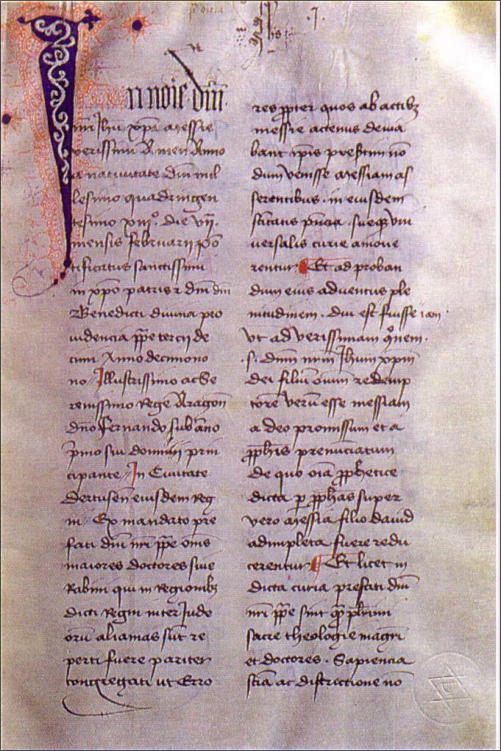 In noie dni
nri Jhu xpi messie
verissimi Amen Anno
a natiuitate dni mil
lesimo quadringen
tesimo xiijº. die vij.
mensis februarij po
tificatus sanctissimi
in xpo patris z dni dni
Benedicti diuina pro
uidencia ppe tercij de
cimi Anno decimono
no Illustrissimo ac se
renissimo Rege Aragon
dno fernando sub ano
pmo sui dominij prin
cipante In Ciuitate
dertusen eiusdem Reg
ni. Ex mandato pre
fati dni nri ppe oms
maiores doctores siue
Rabini qui in Regionibz
dicti Regni inter Judo
oru aliamas sut re
perti fuere pariter
congregati ut Erro
res ppter quos ab actibz
messie actenus deuia
bant ipis
dum venisse messiam as
serentibus. in eiusdem
stitatis pncia. sueqz vni
uersalis curie amoue
rentur. Et ad proban
dum eius aduentus ple
nitudinem. qui est fuisse iam.
ut ad verissimam
.s. dnm nrm Jhum xpm
dei filiu oium redemp
tore veru esse messiam
a deo promissum et a
pphis prenunciatum
de quo oia pphetice
dicta p pphas super
vero messia filio dauid
adimpleta fuere redu
cerentur. Et licet in
dicta curia prefati dni
nri ppe sint qz plurim
sacre theologie magri
et doctores. Sapiencia
scia ac discrecione no